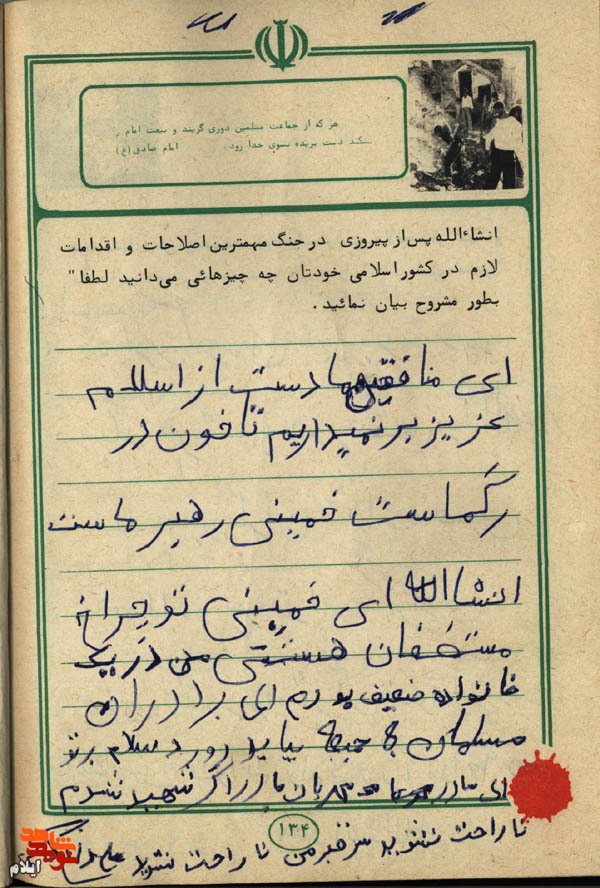 هر که از جماعت مسلمین دوری گزیند و بیعت امام را
بشکند دست بریده بسوی خدا رود. امام صادق (ع)
انشاءالله پس از پیروزی در جنگ مهمترین اصلاحات و اقدامات
لازم در کشور اسلامی خودتان چه چیزهائی می‌دانید لطفا"
بطور مشروح بیان نمائید.
ای منافقین ما دست از اسلام
عزیز بر نمیداریم تا خون در
رگ ماست خمینی رهبر ماست
انشاالله ای خمینی تو چراغ
مستضفان هستی من در یک
خانواده ضعیف بودم ای برادران
مسلمان به جبهه بیاید درود سلام بر تو
ای مادر مهربان مادر اگر شهید شدم
ناراحت نشوید سر قبر من ناراحت نشوید
۱۳۴
شاهد
نوید
ایلام